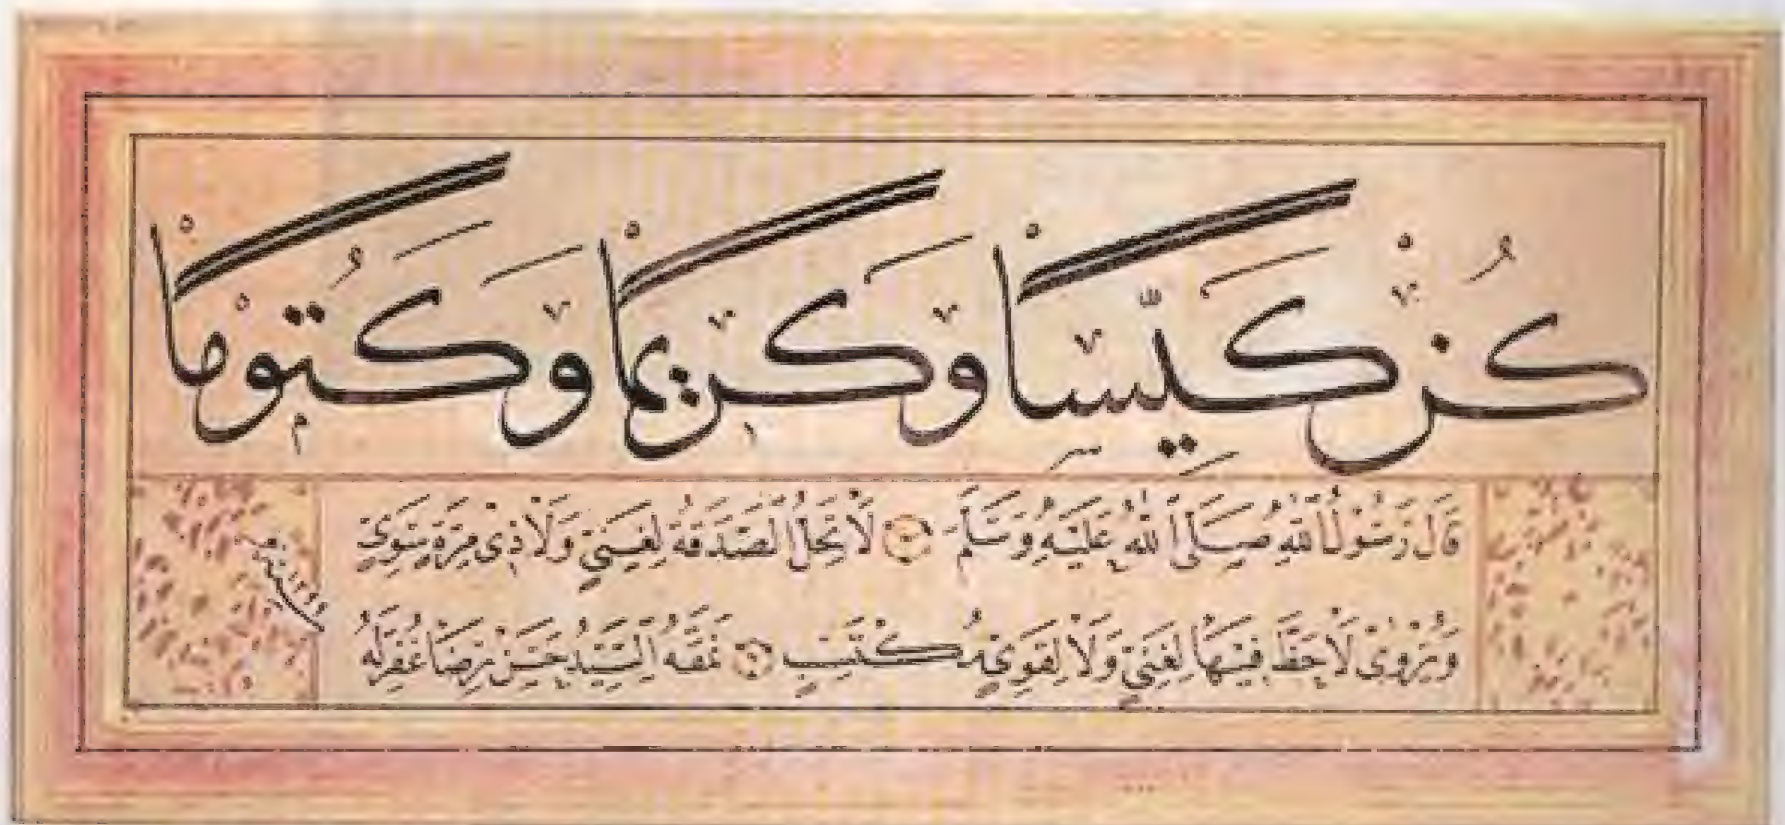 كُنْ كَيِّسًا وَكَرِيمًا وَكَتُومًا
قَالَ رَسُولُ اللّٰهِ صَلَّى اللّٰهُ عَلَيْهِ وَسَلَّمَ لَا تَحِلُّ الصَّدَقَةُ لِغَنِيٍّ وَلَا ذِى مِرَّةٍ سَوِىٍّ
وَيُرْوٰى لَا حَظَّ فِيهَا لِغَنِىٍّ وَلَا لِقَوِىٍّ مُكْتَسِبٍ نَمَّقَهُ السَّيِّدُ حَسَنْ رِضَا غُفِرَلَهُ
سنة